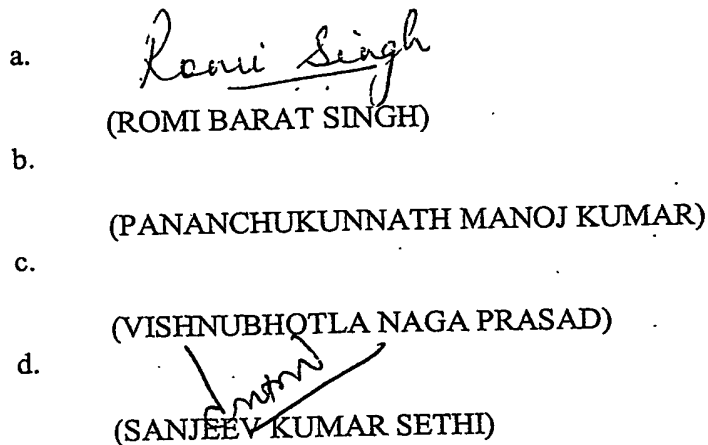 a.
Romi Singh
(ROMI BARAT SINGH)
b.
(PANANCHUKUNNATH MANOJ KUMAR)
c.
(VISHNUBHOTLA NAGA PRASAD)
d.
(SANJEEV KUMAR SETHI)